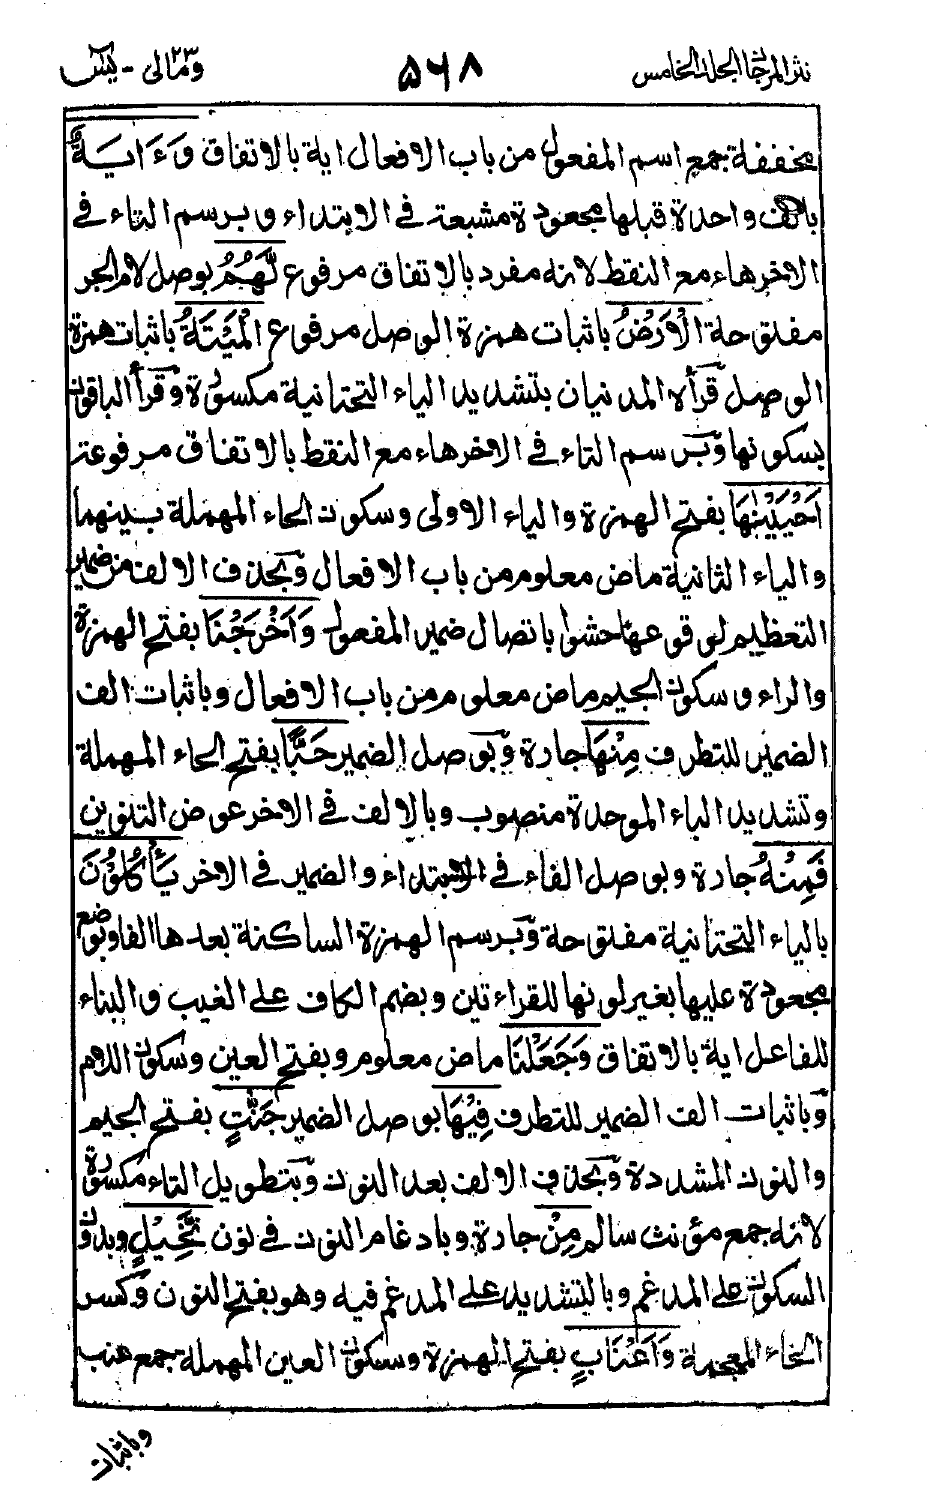 نثر المرجان المجلد الخامس
٥٦٨
ومالی ٢٣ - یٰسٓ
مخففة جمع اسم المفعول من باب الافعال اية بالاتفاق وَءَايَةٌ
بالف واحدة قبلها مجعودة مشبعة فى الابتداء و برسم التاء فى
الاخر هاء مع النقط لانه مفرد بالاتفاق مرفوع لَّهُمُ بوصل لام الجر
مفتوحة الْاَرْضُ باثبات همزة الوصل مرفوع الْمَيْتَةُ باثبات همزة
الوصل قرأه المدنيان بتشديد الياء التحتانية مكسورة وقرأ الباقون
بسكونها وبرسم التاء فى الاخر هاء مع النقط بالاتفاق مرفوعة
اَحْيَيْنٰهَا بفتح الهمزة والياء الاولى وسكون الحاء المهملة بينهما
والياء الثانية ماض معلوم من باب الافعال وبحذف الالف من ضمير
التعظيم لوقوعها حشوا باتصال ضمير المفعول وَاَخْرَجْنَا بفتح الهمزة
والراء و سكون الجيم ماض معلوم من باب الافعال وباثبات الف
الضمير للتطرف مِنْهَا جارة وبوصل الضمير حَبًّا بفتح الحاء المهملة
وتشديد الباء الموحدة منصوب وبالالف فى الاخر عوض التنوين
فَمِنْهُ جارة وبوصل الفاء فى الابتداء والضمير فى الاخر يَأْكُلُوْنَ
بالياء التحتانية مفتوحة وبرسم الهمزة الساكنة بعدها الفا وبوضع
مجعودة عليها بغير لونها للقراءتين وبضم الكاف على الغيب والبناء
للفاعل اية بالاتفاق وَجَعَلْنَا ماض معلوم وبفتح العين وسكون اللام
وباثبات الف الضمير للتطرف فِيْهَا بوصل الضمير جَنّٰتٍ بفتح الجيم
والنون المشددة وبحذف الالف بعد النون وبتطويل التاء مكسورة
لانه جمع مؤنث سالم مِنْ جارة وبادغام النون فى نون نَّخِيْلٍ وبدون
السكون على المدغم وبالتشديد على المدغم فيه وهو بفتح النون وكسر
الخاء المعجمة وَاَعْنَابٍ بفتح الهمزة وسكون العين المهملة جمع عنب
وباثبات